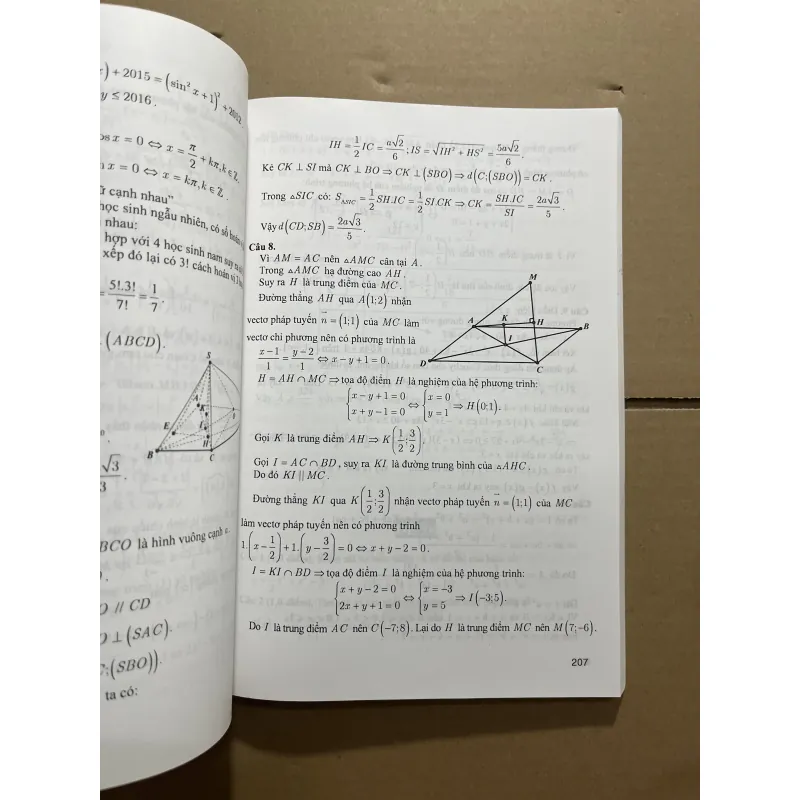 ) + 2015 = (sin² x + 1)² + 2012.
y ≤ 2016.
cos x = 0 ⇔ x = π/2 + kπ, k ∈ ℤ.
x = 0 ⇔ x = kπ, k ∈ ℤ.
ữ cạnh nhau”
học sinh ngẫu nhiên, có số hoán
nhau:
hợp với 4 học sinh nam suy ra
xếp đó lại có 3! cách hoán vị 3
5!.3!/7! = 1/7.
(ABCD).
S
E
K
I
H
B
C
√3/3.
BCO là hình vuông cạnh
// CD
⊥ (SAC).
;(SBO)).
ta có:
IH = 1/2 IC = a√2/6; IS = √(IH² + HS²) = 5a√2/6.
Kẻ CK ⊥ SI mà CK ⊥ BO ⇒ CK ⊥ (SBO) ⇒ d(C;(SBO)) = CK.
Trong △SIC có: S△SIC = 1/2 SH.IC = 1/2 SI.CK ⇒ CK = SH.IC/SI = 2a√3/5.
Vậy d(CD;SB) = 2a√3/5.
Câu 8.
Vì AM = AC nên △AMC cân tại A.
Trong △AMC hạ đường cao AH.
Suy ra H là trung điểm của MC.
Đường thẳng AH qua A(1;2) nhận
vectơ pháp tuyến n⃗ = (1;1) của MC làm
vectơ chỉ phương nên có phương trình là
(x−1)/1 = (y−2)/1 ⇔ x − y + 1 = 0.
M
A
K
H
B
I
D
C
H = AH ∩ MC ⇒ tọa độ điểm H là nghiệm của hệ phương trình:
{x − y + 1 = 0; x + y − 1 = 0 ⇔ {x = 0; y = 1 ⇒ H(0;1).
Gọi K là trung điểm AH ⇒ K(1/2; 3/2).
Gọi I = AC ∩ BD, suy ra KI là đường trung bình của △AHC.
Do đó KI || MC.
Đường thẳng KI qua K(1/2; 3/2) nhận vectơ pháp tuyến n⃗ = (1;1) của MC
làm vectơ pháp tuyến nên có phương trình
1.(x − 1/2) + 1.(y − 3/2) = 0 ⇔ x + y − 2 = 0.
I = KI ∩ BD ⇒ tọa độ điểm I là nghiệm của hệ phương trình:
{x + y − 2 = 0; 2x + y + 1 = 0 ⇔ {x = −3; y = 5 ⇒ I(−3;5).
Do I là trung điểm AC nên C(−7;8). Lại do H là trung điểm MC nên M(7;−6).
207